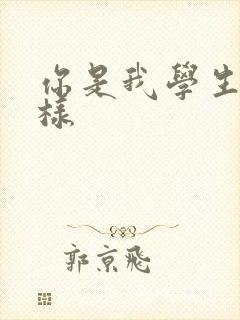 你是我學生
樣
郭京飛